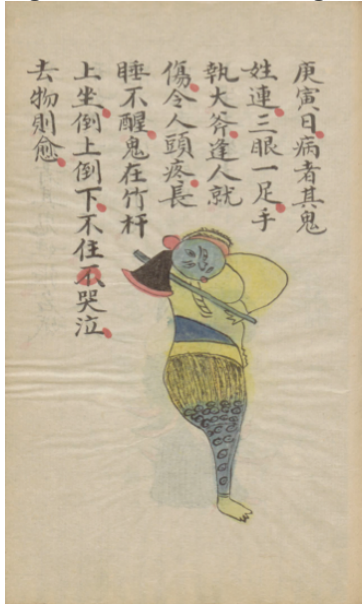 庚寅日病者其鬼
姓連三眼一足手
執大斧逢人就
傷令人頭疼長
睡不醒鬼在竹杆
上坐倒上倒下不住不哭泣
去物則愈